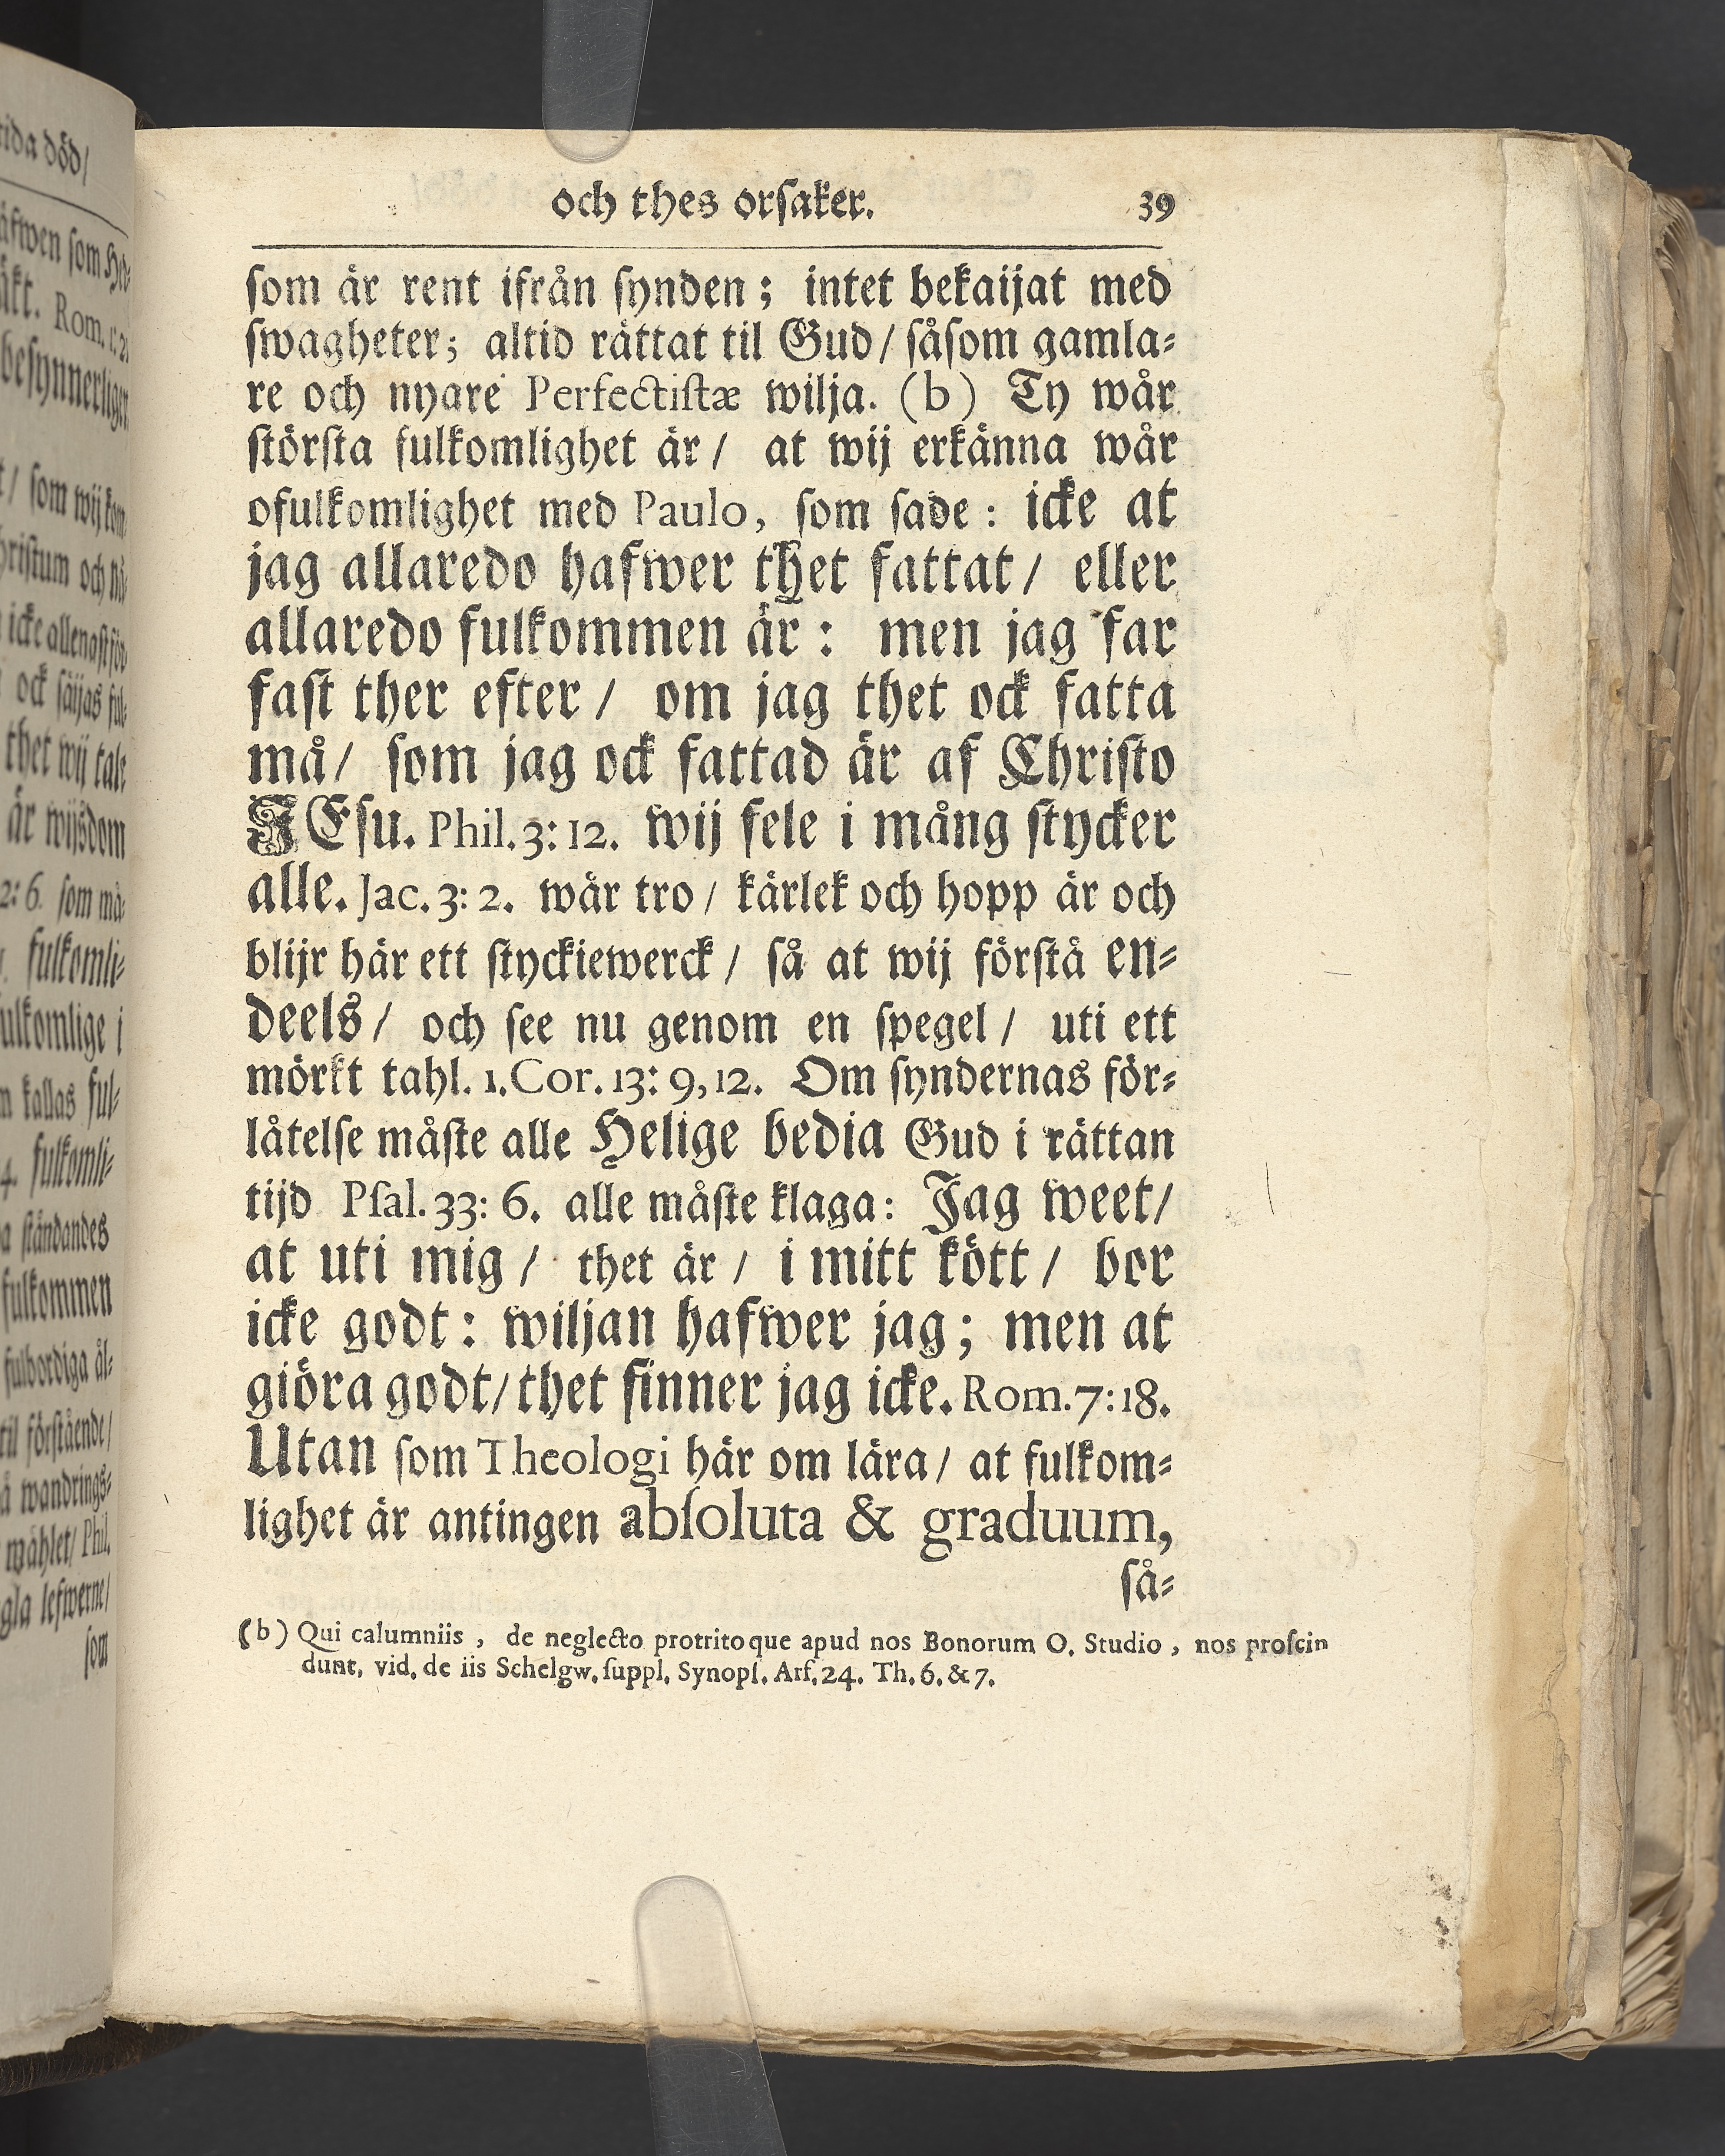 och thes orſaker. 39
ſom är rent ifrån ſynden; intet bekaijat med
ſwagheter; altid rättat til Gud/ ſåſom gamla⸗
re och nyare Perfectiſtæ wilja. (b) Ty wår
ſtörſta fulkomlighet är/ at wij erkänna wår
ofulkomlighet med Paulo, ſom ſade: icke at
jag allaredo hafwer thet fattat/ eller
allaredo fulkommen är: men jag far
faſt ther efter/ om jag thet ock fatta
må/ ſom jag ock fattad är af Chriſto
JEſu. Phil. 3: 12. wij fele i mång ſtycker
alle. Jac. 3: 2. wår tro/ kärlek och hopp är och
blijr här ett ſtyckiewerck/ ſå at wij förſtå en⸗
deels/ och ſee nu genom en ſpegel/ uti ett
mörkt tahl. 1. Cor. 13: 9, 12. Om ſyndernas för⸗
låtelſe måſte alle Helige bedia Gud i rättan
tijd Pſal. 33: 6. alle måſte klaga: Jag weet/
at uti mig/ thet är/ i mitt kött/ bor
icke godt: wiljan hafwer jag; men at
giöra godt/ thet finner jag icke. Rom. 7: 18.
Utan ſom Theologi här om lära/ at fulkom⸗
lighet är antingen abſoluta & graduum,
ſå⸗
(b) Qui calumniis, de neglecto protritoque apud nos Bonorum O. Studio, nos proſcin
dunt, vid. de iis Schelgw. ſuppl. Synopſ. Arſ. 24. Th. 6. & 7.